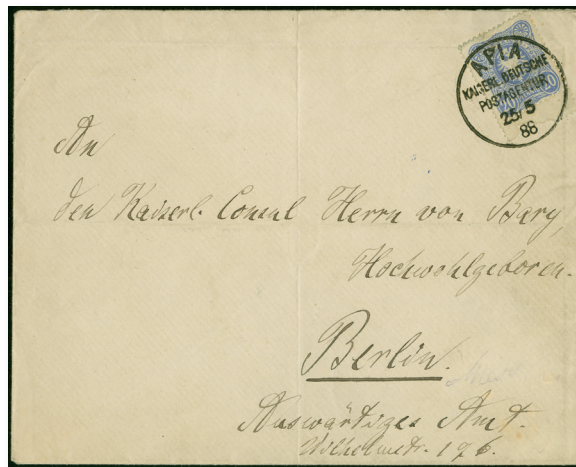 APIA
KAISERL. DEUTSCHE
POSTAGENTUR
25/5
88
20 20
An
den Kaiserl. Consul Herrn von Bary,
Hochwohlgeboren.
Berlin.
Auswärtiges Amt.
Wilhelmstr. 176.